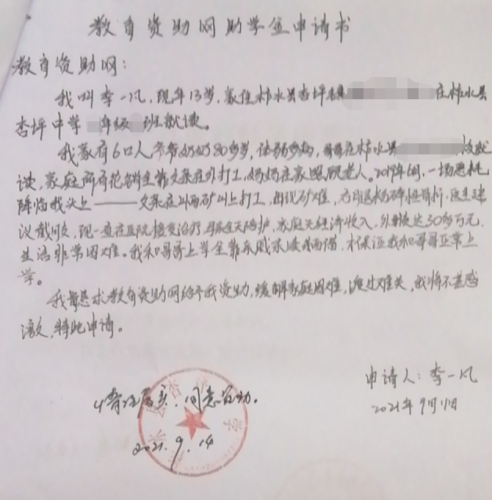 教育资助网助学金申请书
教育资助网：
我叫李一凡，现年13岁，家住柞水县杏坪镇 庄柞水县
杏坪中学 年级 班就读。
我家有6口人，爷爷奶奶80多岁，体弱多病，哥哥在柞水县 校就
读，家庭所有花销全靠父亲在外打工，妈妈在家照顾老人，
降临我头上——父亲在山西矿山上打工，
议截肢，现一直在医院接受治疗，母亲每天陪护，家庭无经济收入，外债达30多万元，
生活非常困难。我和哥哥上学全靠亲戚朋友，才保证我和哥哥正常上
学。
我恳求教育资助网给予我资助，缓解家庭困难，渡过难关，我将不甚感
激，特此申请。
申请人：李一凡
2021年9月11日
情况属实，同意资助。
2021.9.14